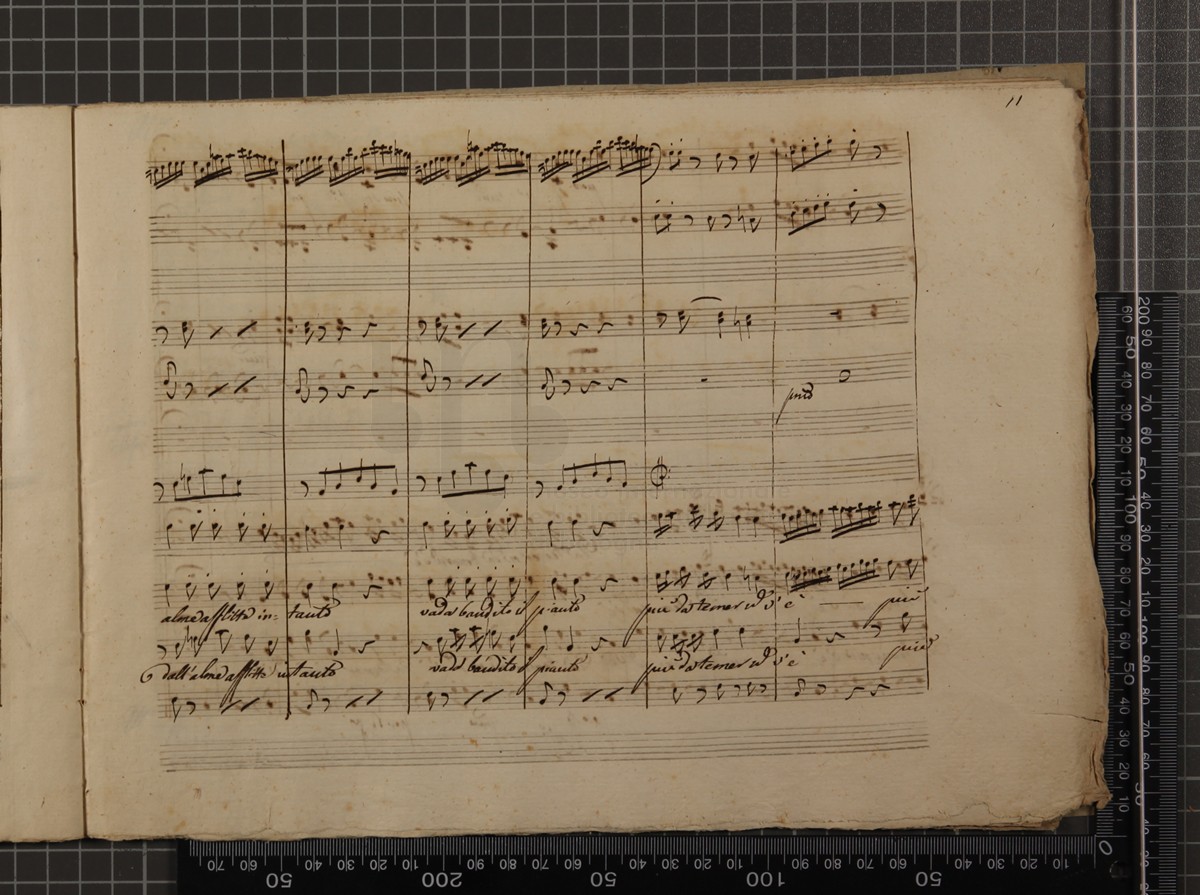 11
pmo
alme afflitte in= tanto vada bandito il pianto più da temer nō v'è più
dall'alme afflitte intanto vada bandito il pianto più da temer nō v'è più
200 90 80 70 60 50 40 30 20 100 90 80 70 60 50 40 30 20 10 0
70 60 50 40 30 20 10 200 90 80 70 60 50 40 30 20 10 100 90 80 70 60 50 40 30 20 10 0